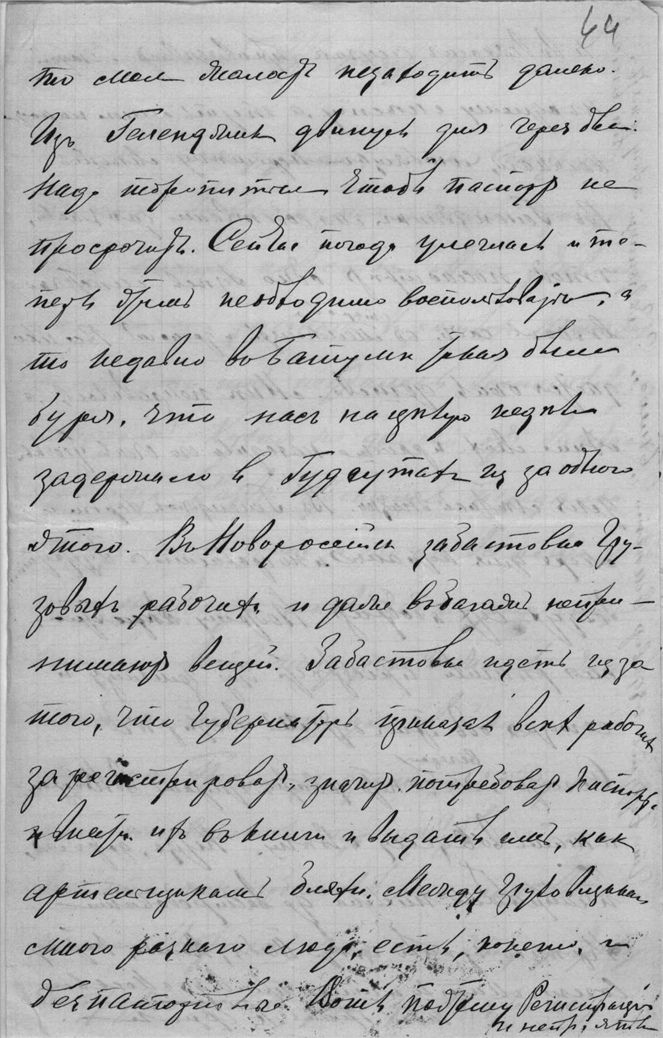 44
то моя жалость незаходитъ далеко.
Изъ Геленджика двинусь дня черезъ два.
Надо торопиться чтобъ паспортъ не
просрочить. Сейчас погода улеглась и те-
перь время необходимо воспользоваться, а
то недавно въ Батуми такая была
буря, что насъ на целую неделю
задержало в Гудаутахъ из за одного
этого. Въ Новороссійске забастовка гру-
зовыхъ рабочихъ и даже въ багажъ непри-
нимают вещей. Забастовка идетъ из за
того, что губернаторъ приказал всехъ рабочих
зарегистрировать, значит потребовать паспорта
их въ книги и выдать имъ, как
артельщикамъ бляхи. Между грузовщиками
много разнаго люда, есть, конечно, и
безпаспортные. Вотъ почему Регистрація
и непріятна